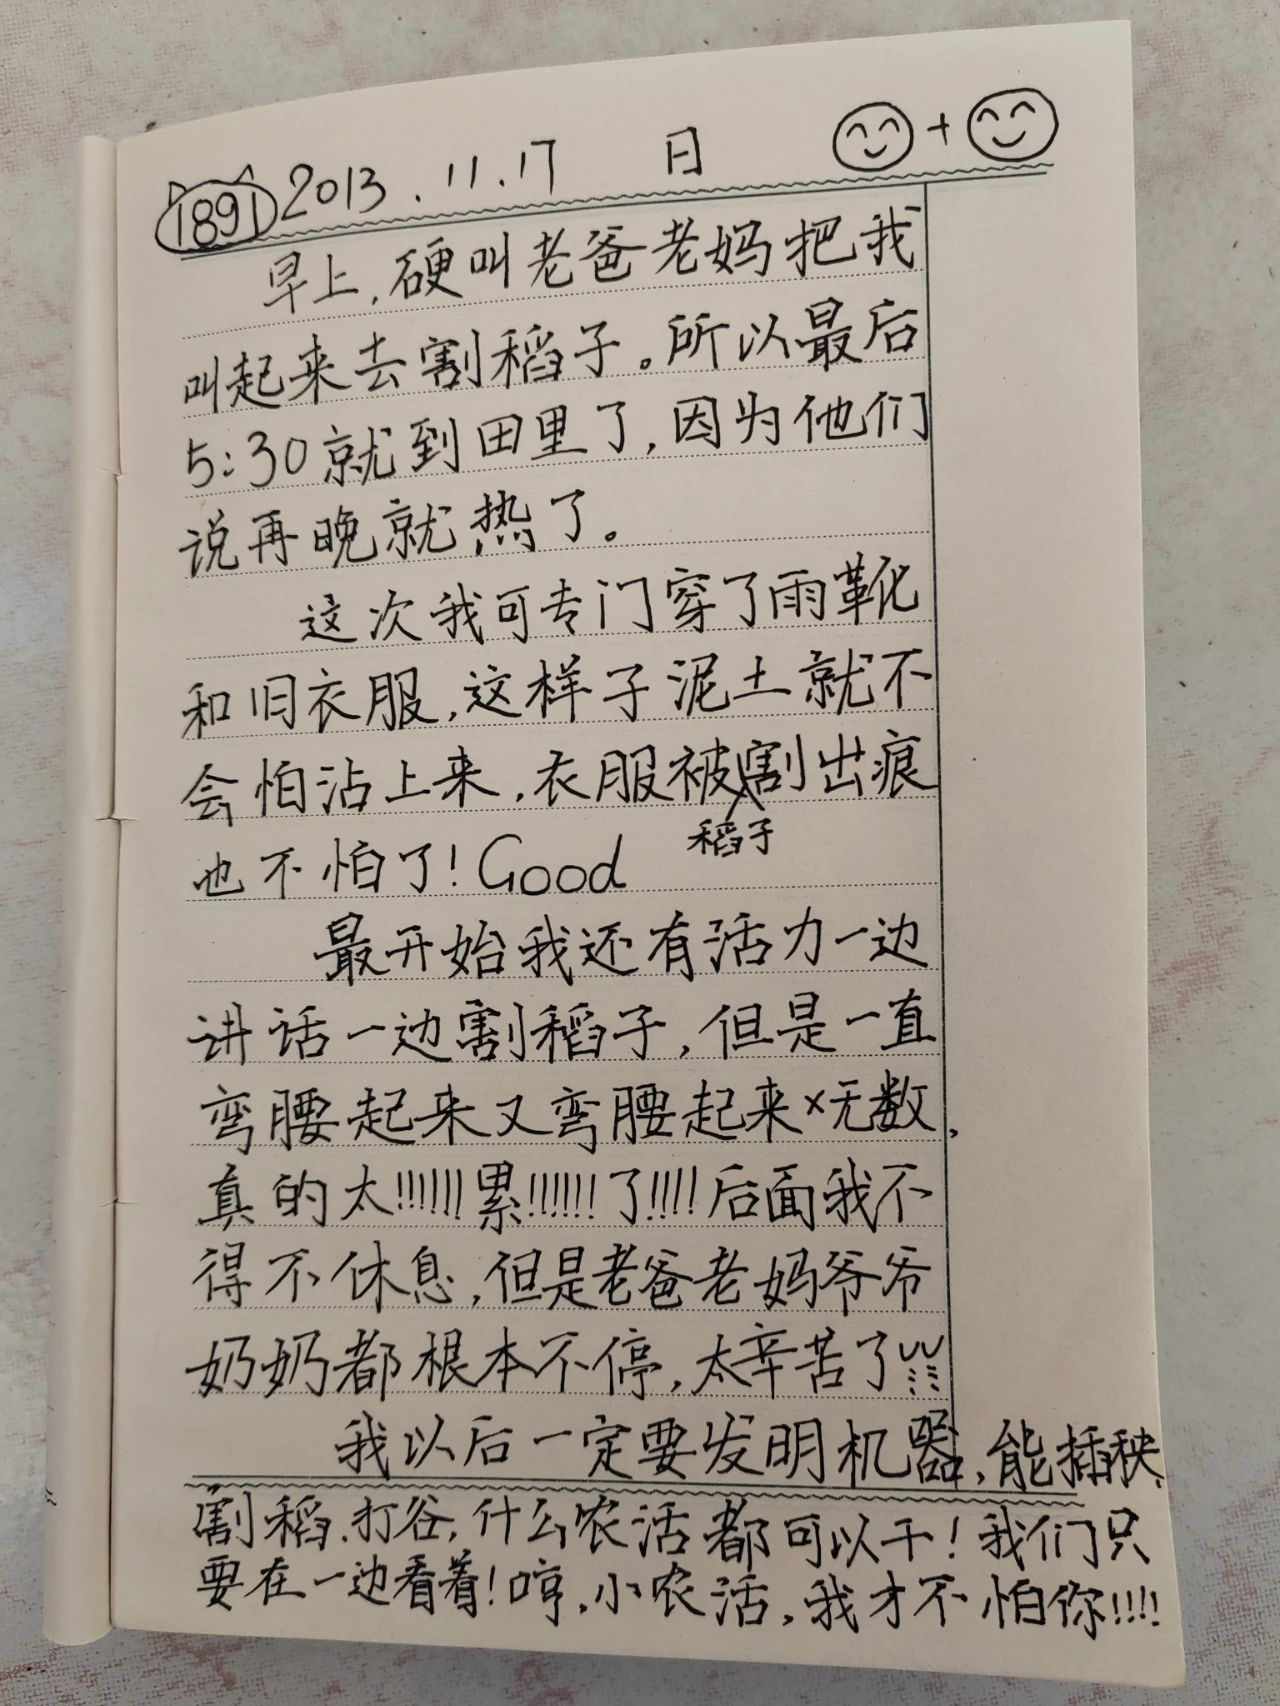 1891 2013.11.17 日 +
早上,硬叫老爸老妈把我
叫起来去割稻子。所以最后
5:30就到田里了,因为他们
说再晚就热了。
这次我可专门穿了雨靴
和旧衣服,这样子泥土就不
会怕沾上来,衣服被稻子割出痕
也不怕了!Good
最开始我还有活力一边
讲话一边割稻子,但是一直
弯腰起来又弯腰起来×无数,
真的太!!!!!!累!!!!!!了!!!!后面我不
得不休息,但是老爸老妈爷爷
奶奶都根本不停,太辛苦了
我以后一定要发明机器,能插秧、
割稻、打谷,什么农活都可以干!我们只
要在一边看着!哼,小农活,我才不怕你!!!!